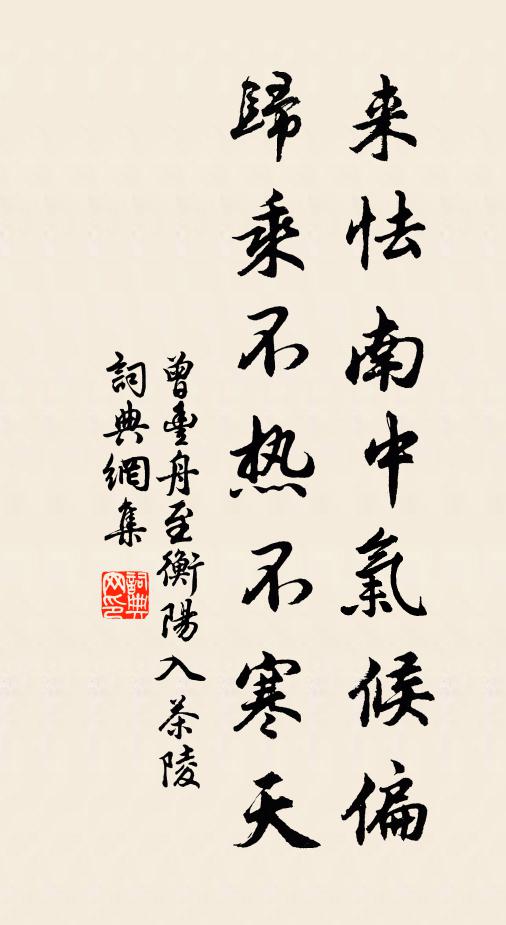 来怯南中氣候偏
歸乘不热不寒天
曾豐舟至衡陽入茶陵
詞典網集
詞典网印